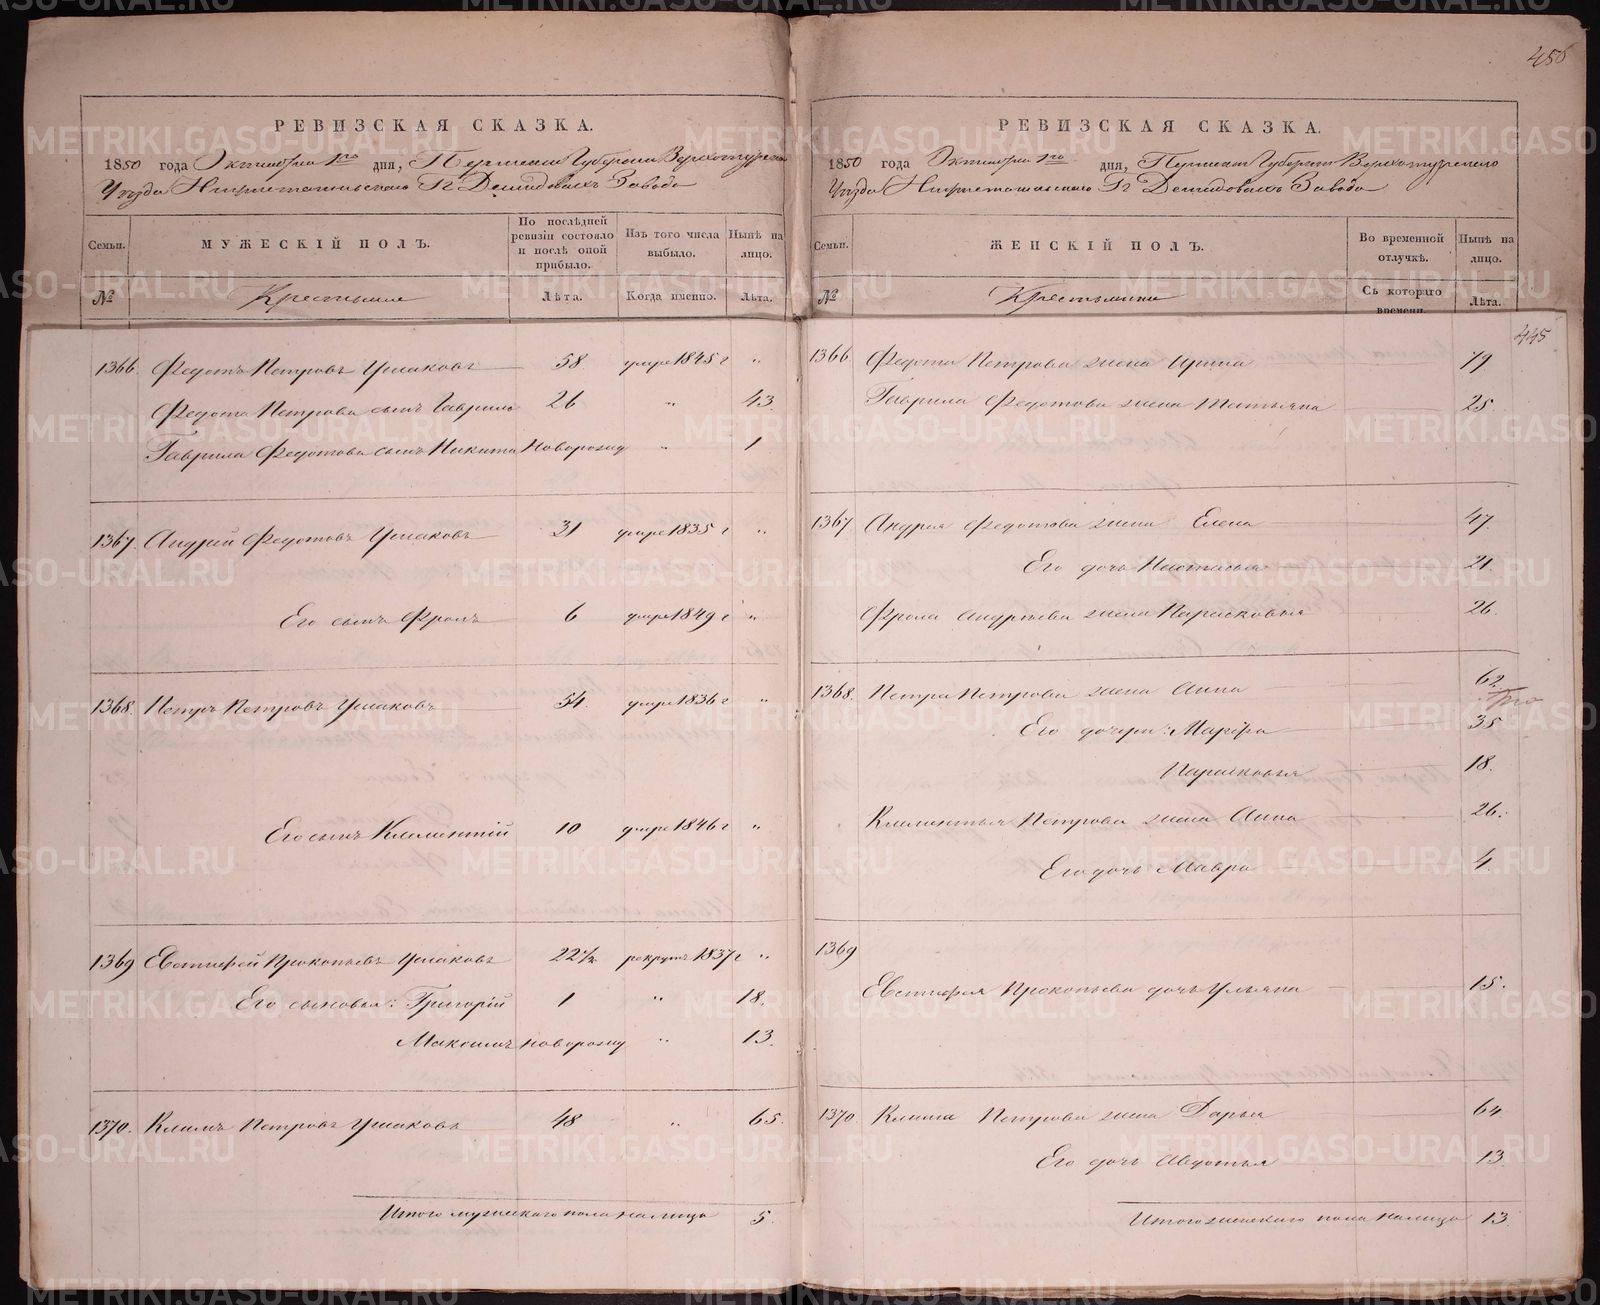 456
РЕВИЗСКАЯ СКАЗКА.
1850 года Октября 1го дня, Пермской Губернии Верхотурскаго
Уезда Нижнетагильскаго Гг Демидовыхъ Завода
Семьи.
МУЖЕСКІЙ ПОЛЪ.
По послѣдней ревизіи состояло и послѣ оной прибыло.
Изъ того числа выбыло.
Нынѣ на лицо.
№
Крестьяне
Лѣта.
Когда именно.
Лѣта.
1366. Федотъ Петровъ Ушаковъ 58 умре 1845 г "
Федота Петрова сынъ Гаврило 26 " 43.
Гаврила Федотова сынъ Никита Новорожд " 1
1367. Андрей Федотовъ Ушаковъ 31 умре 1835 г "
Его сынъ Фролъ 6 умре 1849 г "
1368. Петръ Петровъ Ушаковъ 54 умре 1836 г "
Его сынъ Климентій 10 умре 1846 г "
1369 Евстифей Прокопьевъ Ушаковъ 22 1/2 рекрутъ 1837 г "
Его сыновья: Григорій 1 " 18.
Максимъ новорожд " 13.
1370. Климъ Петровъ Ушаковъ 48 " 65.
Итого мужескаго пола налицо 5.
РЕВИЗСКАЯ СКАЗКА.
1850 года Октября 1го дня, Пермской Губерніи Верхотурскаго
Уезда Нижнетагильскаго Гг Демидовыхъ Завода
Семьи.
ЖЕНСКІЙ ПОЛЪ.
Во временной отлучкѣ.
Нынѣ на лицо.
№
Крестьянки
Съ котораго времени.
Лѣта.
445
1366. Федота Петрова жена Ирина 79
Гаврила Федотова жена Татьяна 25.
1367. Андрея Федотова жена Елена 47.
Его дочь Настасья 21.
Фрола Андреева жена Парасковья 26.
1368. Петра Петрова жена Анна 62.
Его дочери: Марфа 35
Парасковья 18.
Климентья Петрова жена Анна 26.
Его дочь Мавра 4.
1369
Евстифея Прокопьева дочь Ульяна 15.
1370. Клима Петрова жена Дарья 64
Его дочь Авдотья 13.
Итого женскаго пола налицо 13.
METRIKI.GASO-URAL.RU